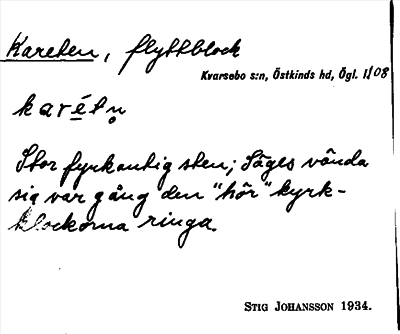 Kareten, flyttblock
Kvarsebo s:n, Östkinds hd, Ögl. 1/08
karétn̥
Stor fyrkantig sten; Säges vända
sig var gång den "hör" kyrk-
klockorna ringa.
STIG JOHANSSON 1934.